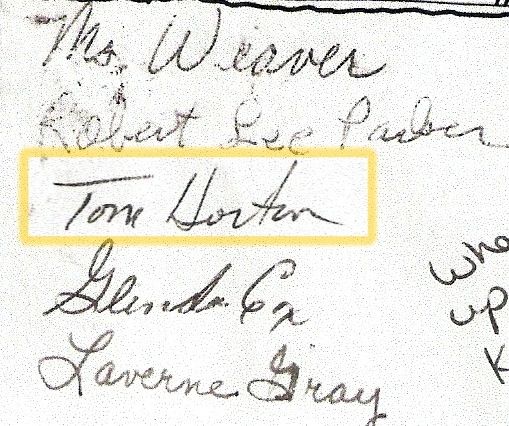 Ms. Weaver
Robert Lee Parker
Tom Horton
Glenda Cox
Laverne Gray
whe
up
K